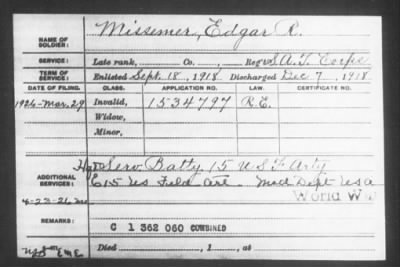 NAME OF SOLDIER: Missemer, Edgar R.
SERVICE: Late rank, Co., Reg't S.A.T. Corps
TERM OF SERVICE: Enlisted Sept. 18, 1918 Discharged Dec 7, 1918
DATE OF FILING. CLASS. APPLICATION NO. LAW. CERTIFICATE NO.
1926-Mar. 29 Invalid, 1534797 R.E.
Widow,
Minor,
ADDITIONAL SERVICES: Hq & Serv. Batty 15 U S F Arty
E 15 US Field Art. Med Dept USA
World War
REMARKS: C 1 362 060 COMBINED
Died , 1 , at